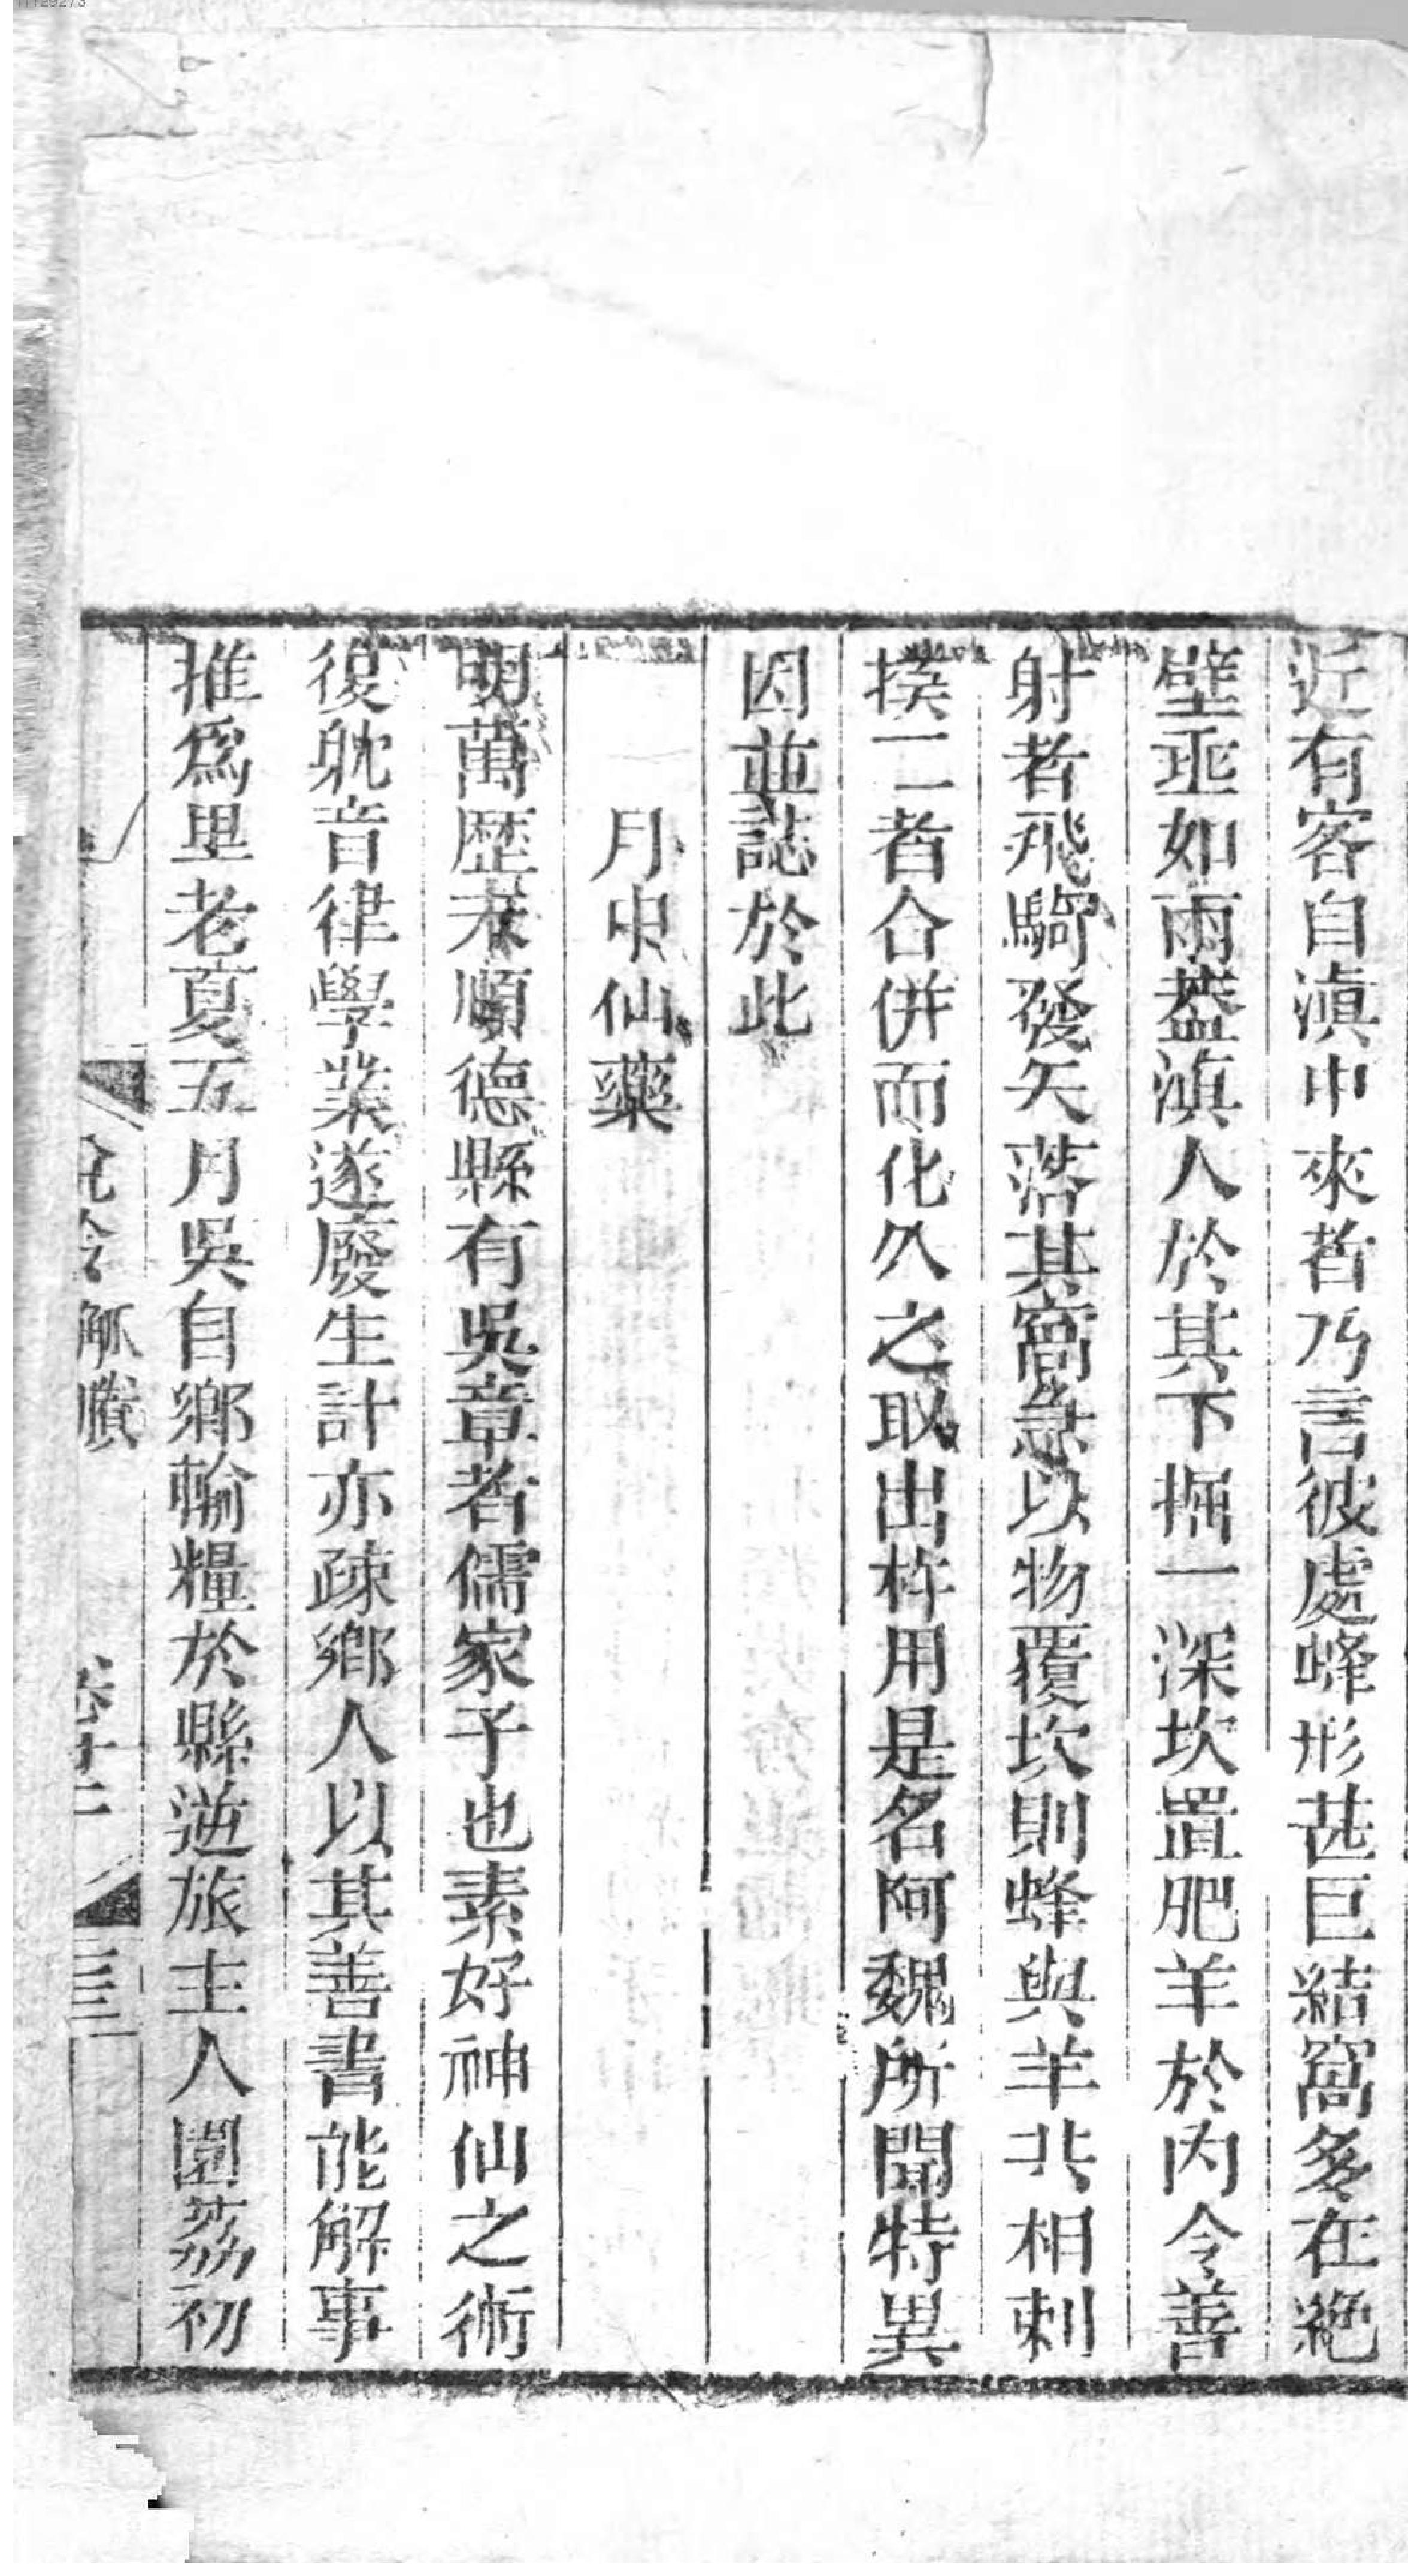 近有客自滇中來者乃言彼處蜂形甚巨結窩多在絶
壁垂如雨蓋滇人於其下掘一深坎置肥羊於内令善
射者飛騎發矢落其窩急以物覆坎則蜂與羊共相刺
撲二者合併而化久之取出杵用是名阿魏所聞特異
因並誌於此
月中仙藥
明萬歴末順德縣有吳章者儒家子也素好神仙之術
復躭音律學業遂廢生計亦疎鄉人以其善書能解事
推爲里老夏五月吳自鄉輸糧於縣逆旅主人園荔初
觚賸
三